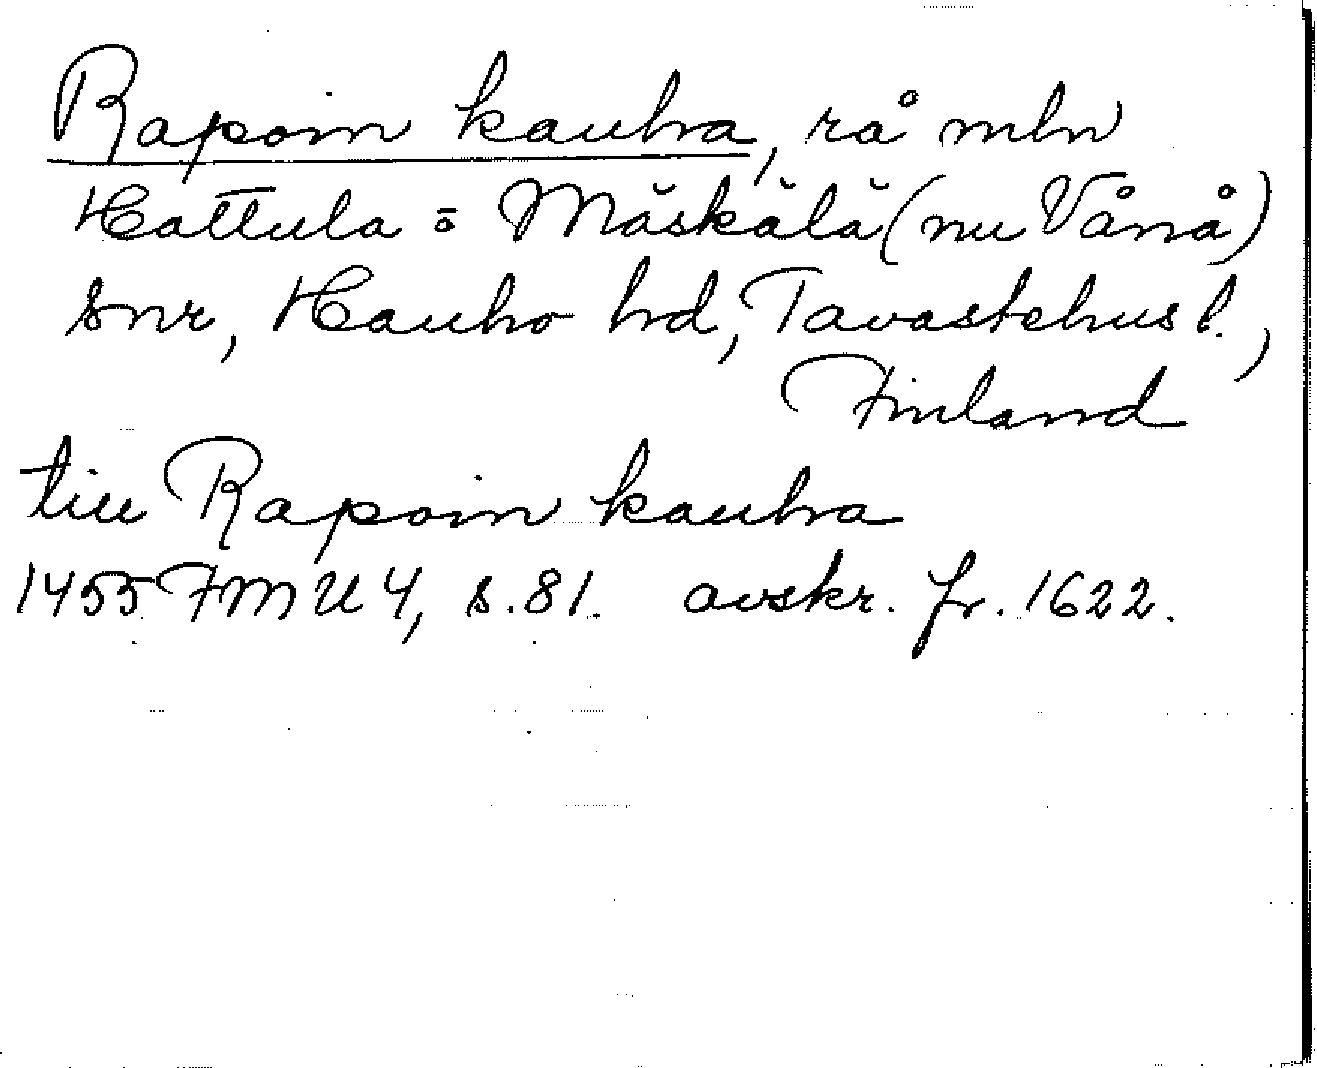 Rapoin kauhra, rå mln
Hattula = Mäskälä (nu Vånå)
snr, Hauho hd, Tavastehus l.,
Finland
till Rapoin kauhra
1455 FMU 4, s. 81. avskr. fr. 1622.